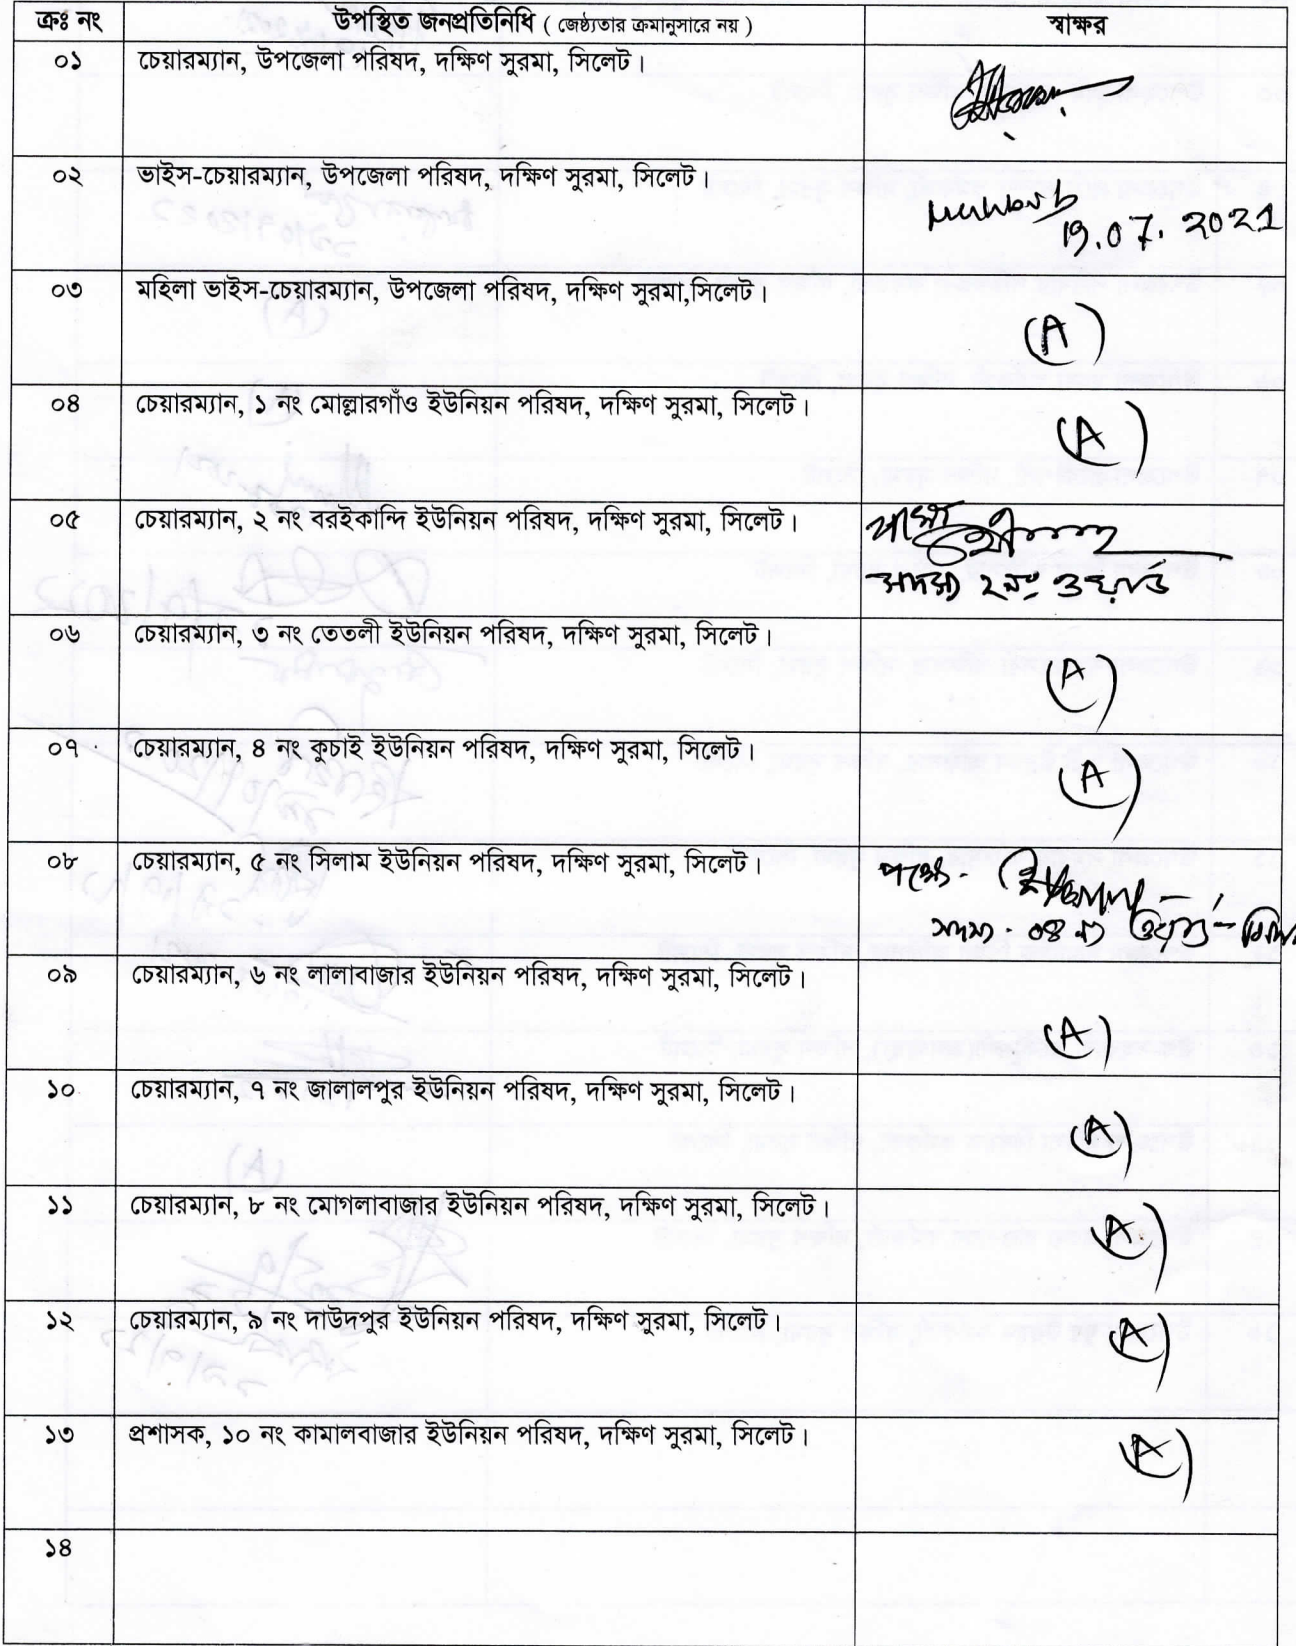 ক্রঃ নং উপস্থিত জনপ্রতিনিধি ( জেষ্ঠ্যতার ক্রমানুসারে নয় ) স্বাক্ষর
০১ চেয়ারম্যান, উপজেলা পরিষদ, দক্ষিণ সুরমা, সিলেট।
০২ ভাইস-চেয়ারম্যান, উপজেলা পরিষদ, দক্ষিণ সুরমা, সিলেট।
19.07.2021
০৩ মহিলা ভাইস-চেয়ারম্যান, উপজেলা পরিষদ, দক্ষিণ সুরমা,সিলেট।
(A)
০৪ চেয়ারম্যান, ১ নং মোল্লারগাঁও ইউনিয়ন পরিষদ, দক্ষিণ সুরমা, সিলেট।
(A)
০৫ চেয়ারম্যান, ২ নং বরইকান্দি ইউনিয়ন পরিষদ, দক্ষিণ সুরমা, সিলেট।
পক্ষে
সদস্য ২নং ওয়ার্ড
০৬ চেয়ারম্যান, ৩ নং তেতলী ইউনিয়ন পরিষদ, দক্ষিণ সুরমা, সিলেট।
(A)
০৭ চেয়ারম্যান, ৪ নং কুচাই ইউনিয়ন পরিষদ, দক্ষিণ সুরমা, সিলেট।
(A)
০৮ চেয়ারম্যান, ৫ নং সিলাম ইউনিয়ন পরিষদ, দক্ষিণ সুরমা, সিলেট।
পক্ষে-
সদস্য - ০৪ নং ওয়ার্ড -
০৯ চেয়ারম্যান, ৬ নং লালাবাজার ইউনিয়ন পরিষদ, দক্ষিণ সুরমা, সিলেট।
(A)
১০ চেয়ারম্যান, ৭ নং জালালপুর ইউনিয়ন পরিষদ, দক্ষিণ সুরমা, সিলেট।
(A)
১১ চেয়ারম্যান, ৮ নং মোগলাবাজার ইউনিয়ন পরিষদ, দক্ষিণ সুরমা, সিলেট।
(A)
১২ চেয়ারম্যান, ৯ নং দাউদপুর ইউনিয়ন পরিষদ, দক্ষিণ সুরমা, সিলেট।
(A)
১৩ প্রশাসক, ১০ নং কামালবাজার ইউনিয়ন পরিষদ, দক্ষিণ সুরমা, সিলেট।
(A)
১৪